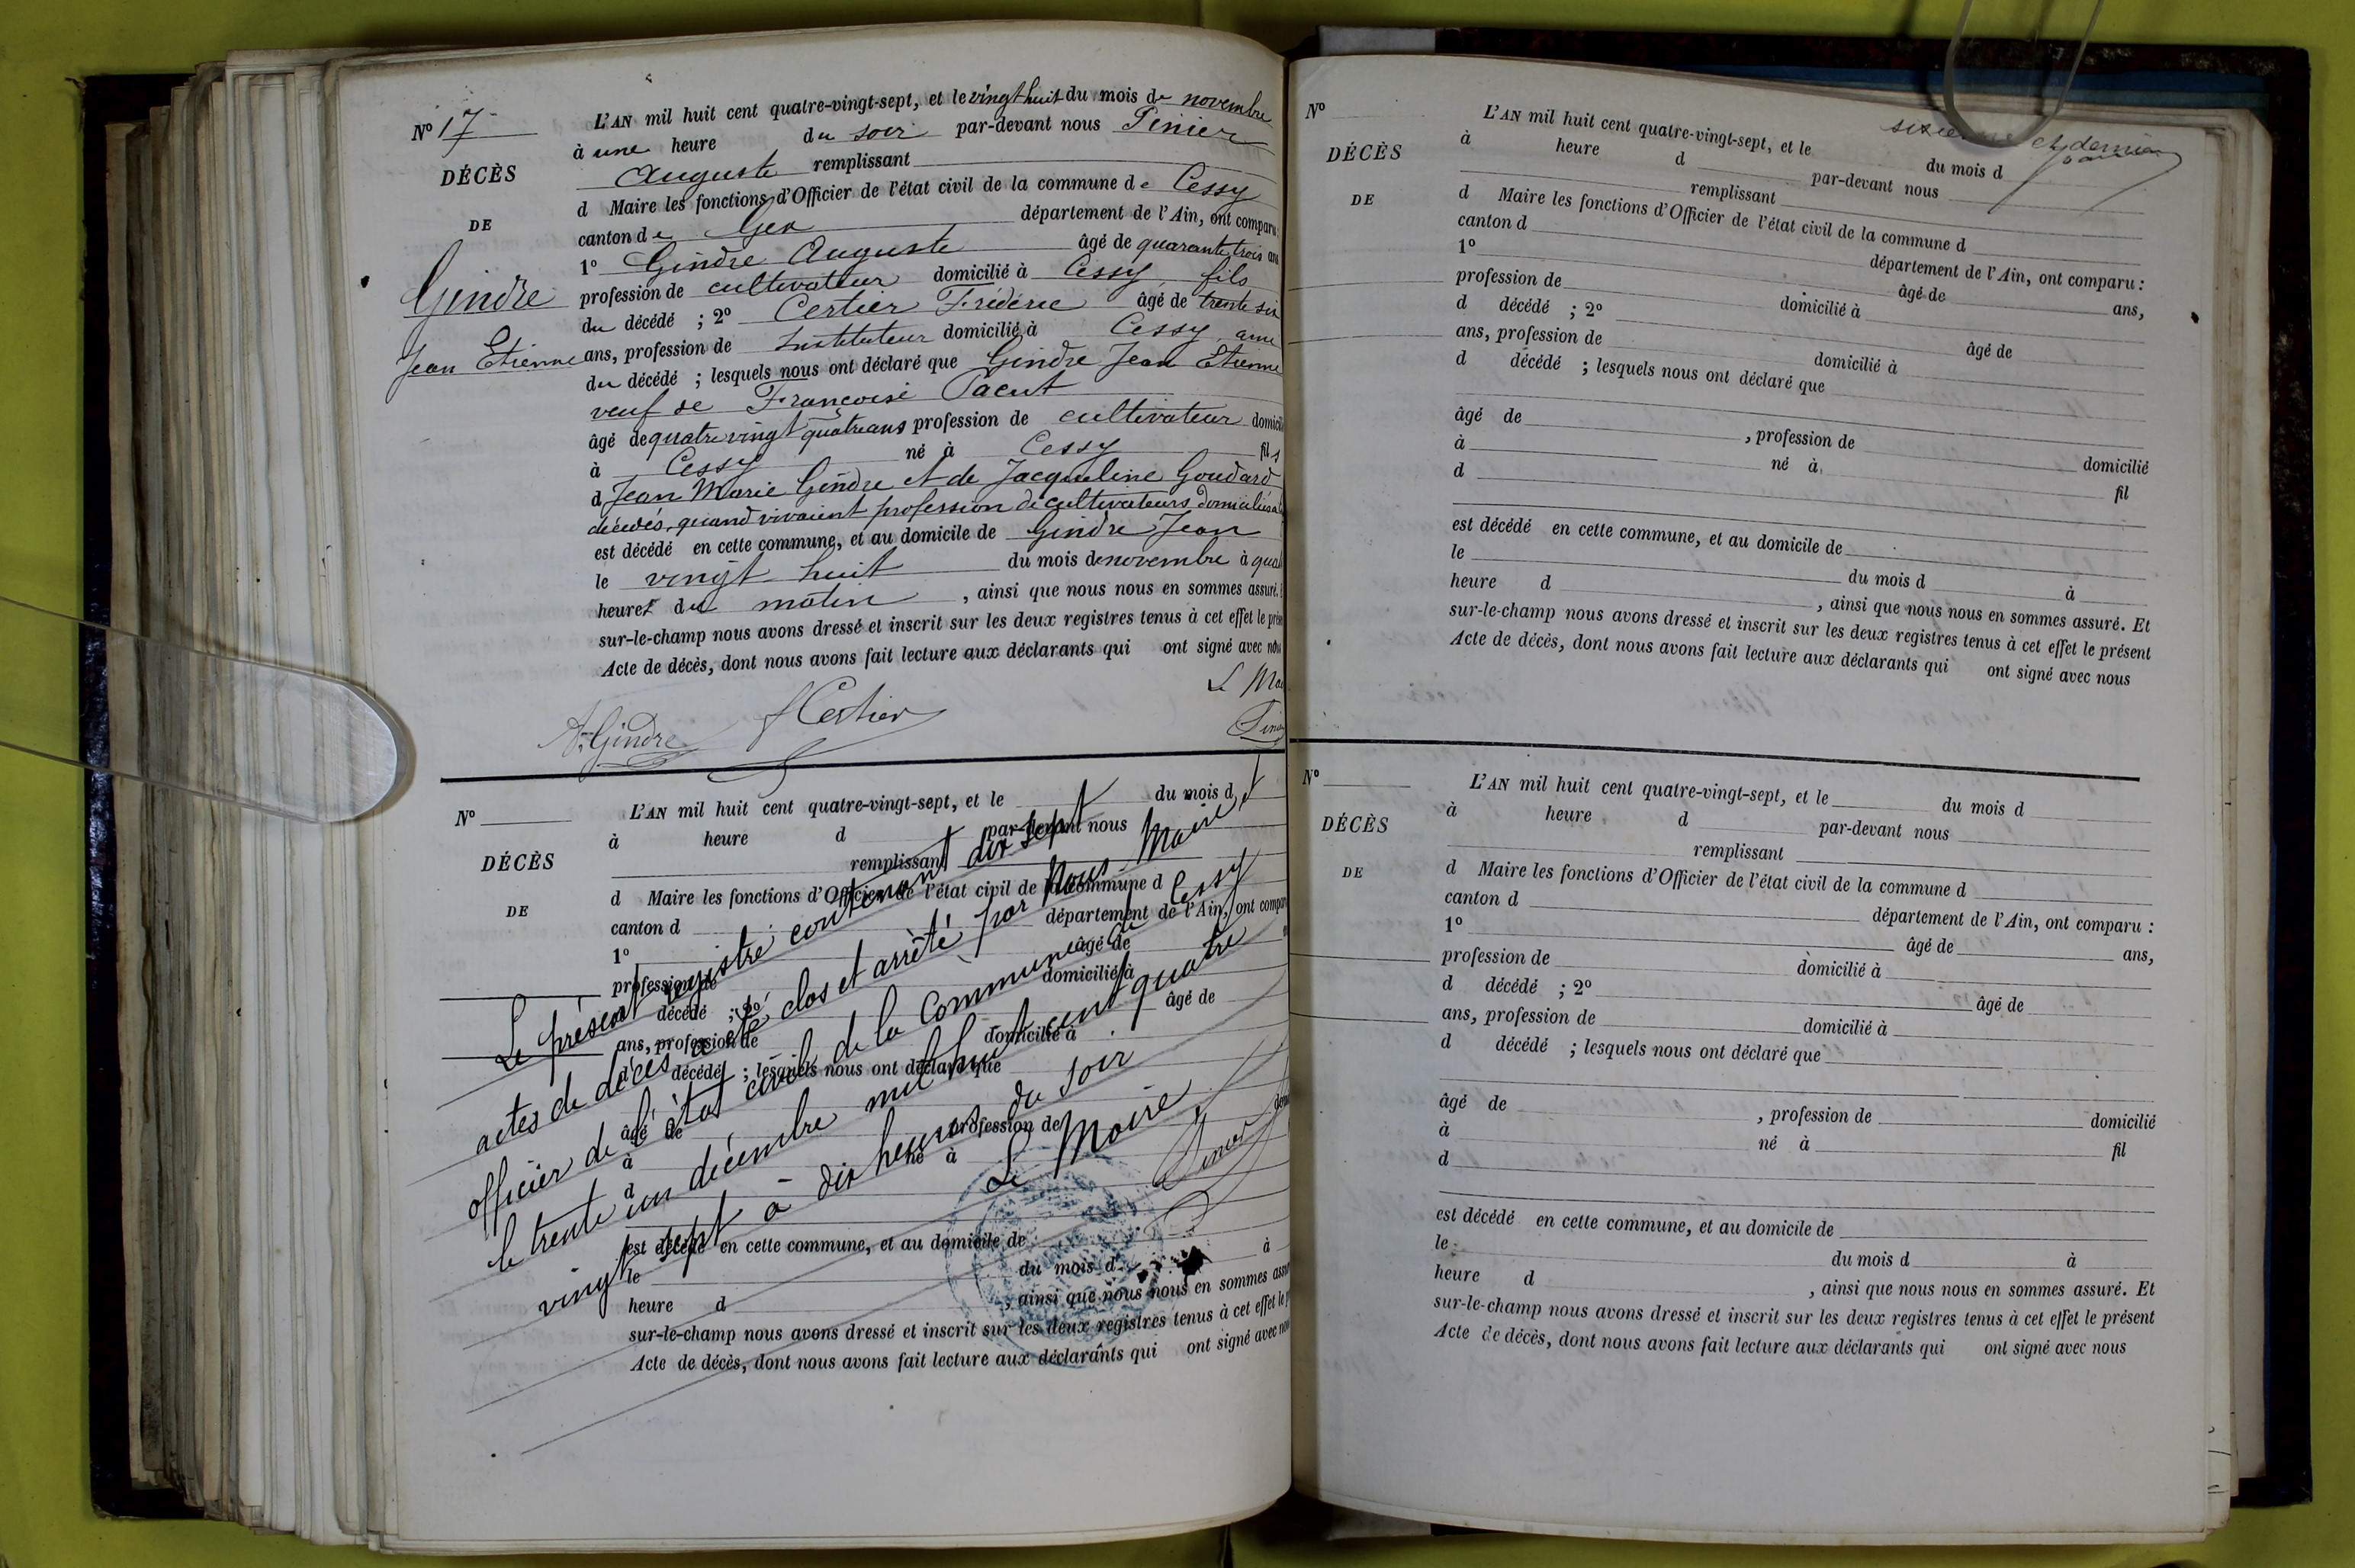 N° 17
DÉCÈS
DE
Gindre
Jean Etienne
L'AN mil huit cent quatre-vingt-sept, et le vingt huit du mois de novembre
à une heure du soir par-devant nous Pinier
Auguste remplissant
d Maire les fonctions d'Officier de l'état civil de la commune de Cessy
canton de Gex département de l'Ain, ont comparu
1° Gindre Auguste âgé de quarante trois ans
profession de cultivateur domicilié à Cessy fils
du décédé ; 2° Certier Fréderic âgé de trente six
ans, profession de Instituteur domicilié à Cessy ami
du décédé ; lesquels nous ont déclaré que Gindre Jean Etienne
veuf de Françoise Pacut
âgé de quatre vingt quatre ans profession de cultivateur domicil
à Cessy né à Cessy fils
d Jean Marie Gindre et de Jacqueline Goudard
décédés, quand vivaient profession de cultivateurs domiciliés à
est décédé en cette commune, et au domicile de Gindre Jean
le vingt huit du mois de novembre à qua
heures du matin , ainsi que nous nous en sommes assuré.
sur-le-champ nous avons dressé et inscrit sur les deux registres tenus à cet effet le prés
Acte de décès, dont nous avons fait lecture aux déclarants qui ont signé avec nou
Le Mai
A. Gindre f Certier Pinier
N°
DÉCÈS
DE
L'AN mil huit cent quatre-vingt-sept, et le du mois d
à heure d par-devant nous
remplissant
d Maire les fonctions d'Officier de l'état civil de la commune d
canton d département de l'Ain, ont compar
1° âgé de
profession de domicilié à
décédé ; 2° âgé de
ans, profession de domicilié à
d décédé ; lesquels nous ont déclaré que
âgé de profession de dom
à né à
d
est décédé en cette commune, et au domicile de
le du mois d à
heure d , ainsi que nous nous en sommes assu
sur-le-champ nous avons dressé et inscrit sur les deux registres tenus à cet effet le p
Acte de décès, dont nous avons fait lecture aux déclarants qui ont signé avec no
Le présent registre contenant dix sept
actes de décès a été clos et arrêté par nous Maire et
officier de l'état civil de la Commune de Cessy
le trente un décembre mil huit cent quatre
vingt sept à dix heures du soir
Le Maire
Pinier
N°
DÉCÈS
DE
et dernier
L'AN mil huit cent quatre-vingt-sept, et le du mois d
à heure d par-devant nous
remplissant
d Maire les fonctions d'Officier de l'état civil de la commune d
canton d département de l'Ain, ont comparu :
1° âgé de ans,
profession de domicilié à
d décédé ; 2° âgé de
ans, profession de domicilié à
d décédé ; lesquels nous ont déclaré que
âgé de , profession de domicilié
à né à fil
d
est décédé en cette commune, et au domicile de
le du mois d à
heure d , ainsi que nous nous en sommes assuré. Et
sur-le-champ nous avons dressé et inscrit sur les deux registres tenus à cet effet le présent
Acte de décès, dont nous avons fait lecture aux déclarants qui ont signé avec nous
N°
DÉCÈS
DE
L'AN mil huit cent quatre-vingt-sept, et le du mois d
à heure d par-devant nous
remplissant
d Maire les fonctions d'Officier de l'état civil de la commune d
canton d département de l'Ain, ont comparu :
1° âgé de ans,
profession de domicilié à
d décédé ; 2° âgé de
ans, profession de domicilié à
d décédé ; lesquels nous ont déclaré que
âgé de , profession de domicilié
à né à fil
d
est décédé en cette commune, et au domicile de
le du mois d à
heure d , ainsi que nous nous en sommes assuré. Et
sur-le-champ nous avons dressé et inscrit sur les deux registres tenus à cet effet le présent
Acte de décès, dont nous avons fait lecture aux déclarants qui ont signé avec nous